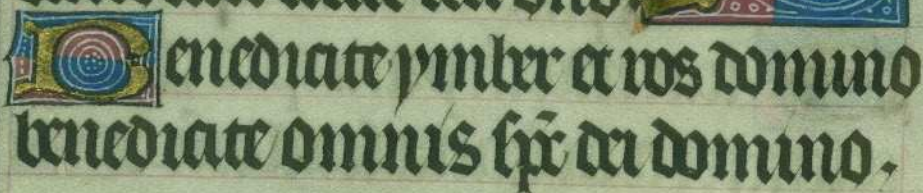 Benedicite ymber et ros domino
benedicite omnis sp̄c dei domino.